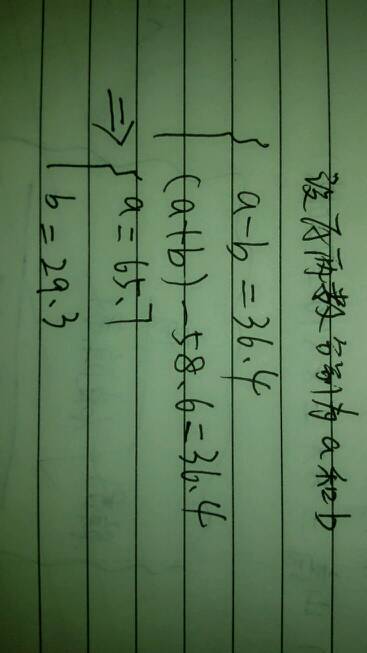 设这两数分别为a和b
a-b=36.4
(a+b)-58.6=36.4
⇒
a=65.7
b=29.3